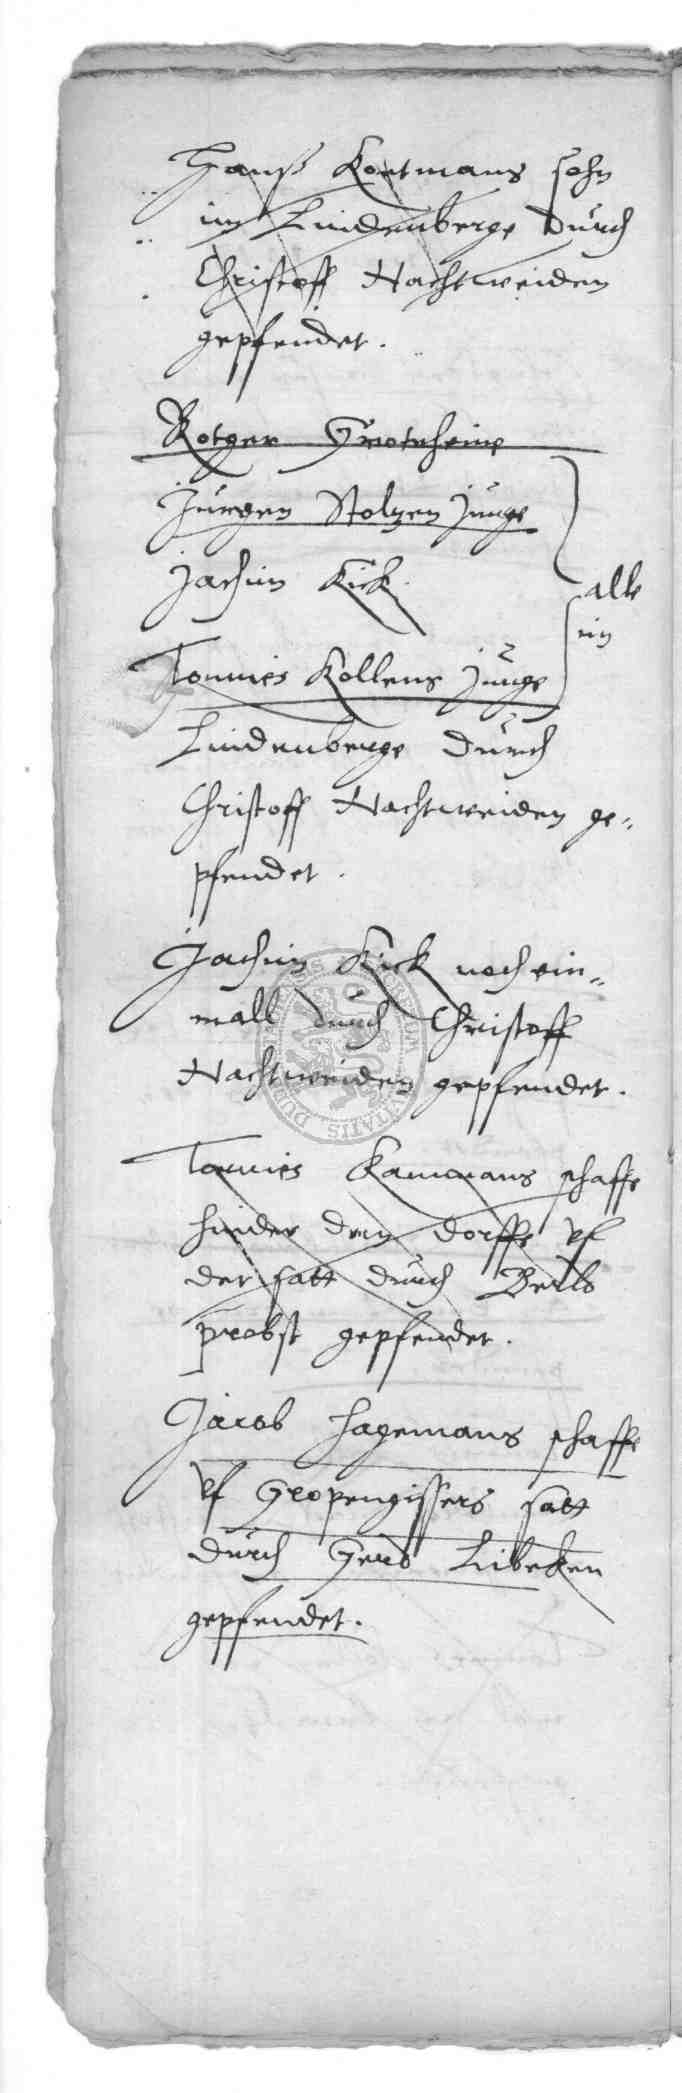 Hanß Kortmans sohn
im Lindenberge durch
Christoff Nachtweiden
gepfendet.
Rotger Groteheine
Jurgen Stolzen junge
Jachim Kick
alle
im
Tonnies Kollens junge
Lindenberge durch
Christoff Nachtweiden ge„
pfendet.
Jachim Kick noch ein„
mall durch Christoff
Nachtweiden gepfendet.
Tonnies Kammans schaffe
hinder dem dorffe vf
der satt durch
probst gepfendet.
Jacob Hagemans schaffe
vf Gropengissers satt
durch Gerd Libeken
gepfendet.